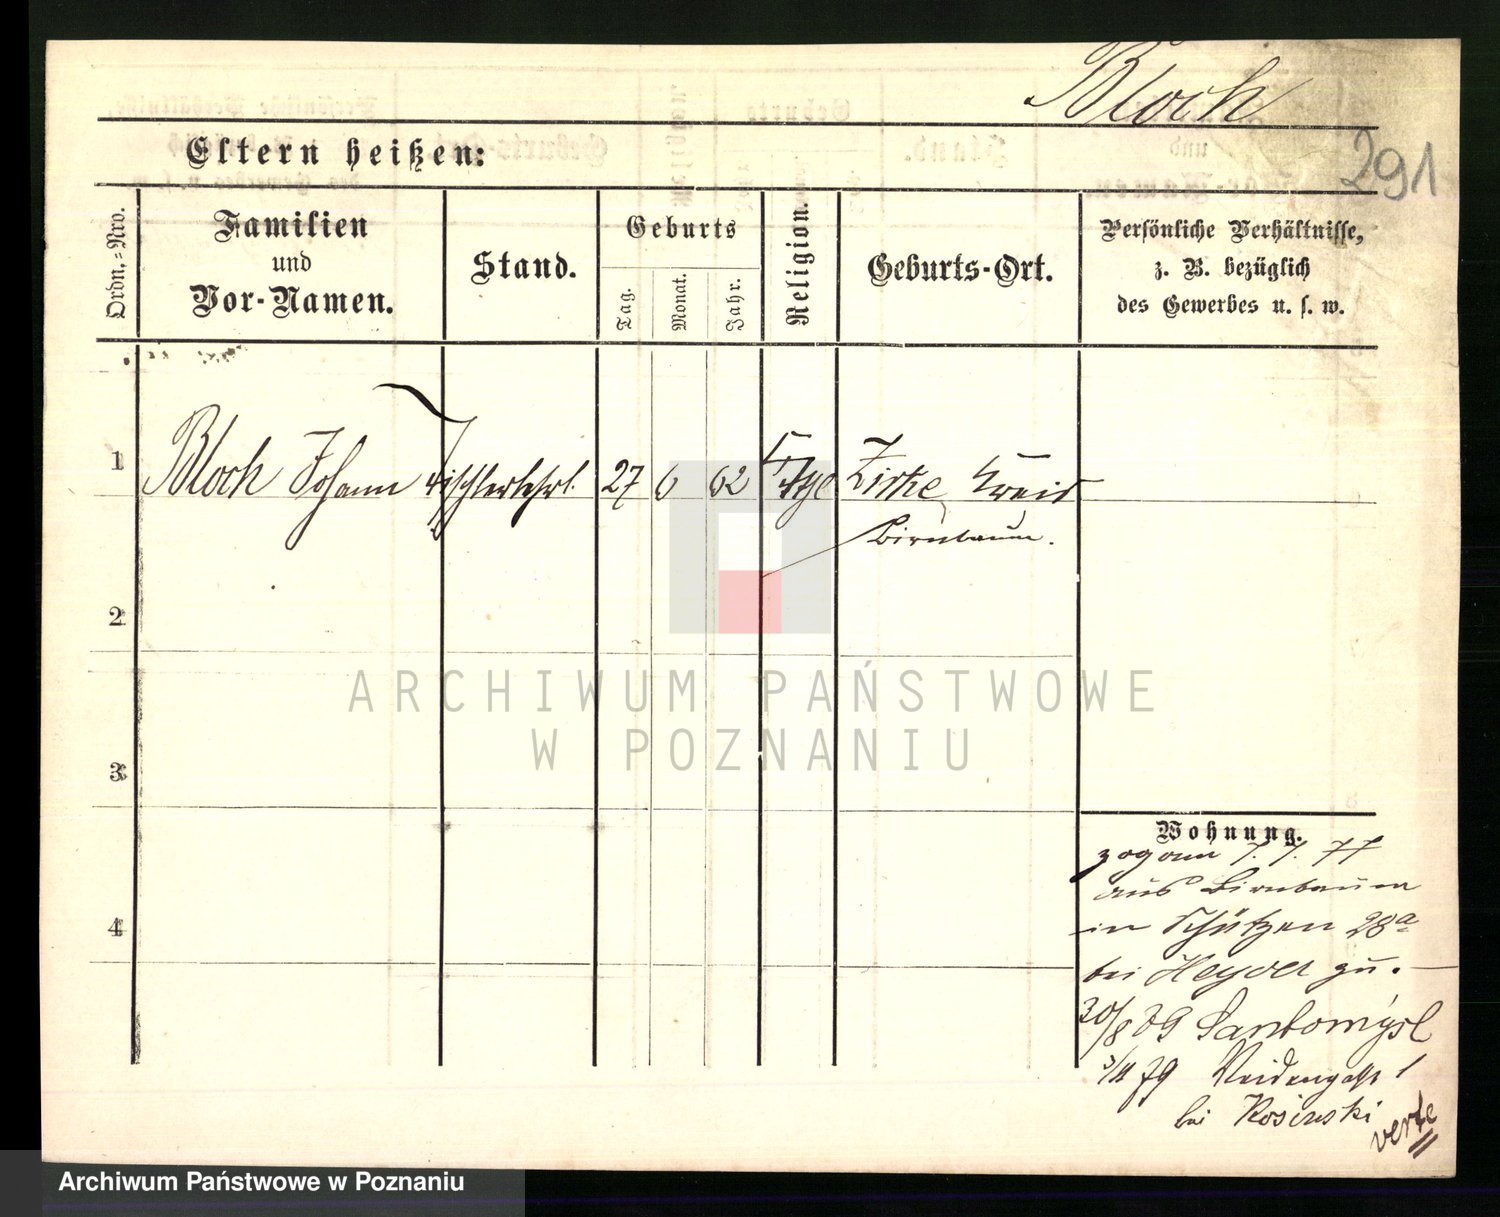 Bloch
291
Eltern heißen:
Ordn.-Nro.
Familien
und
Vor-Namen.
Stand.
Geburts
Tag.
Monat.
Jahr.
Religion.
Geburts-Ort.
Persönliche Verhältnisse,
z. B. bezüglich
des Gewerbes u. s. w.
1 Bloch Johann Tischlerlehrl. 27 6 62 Zirke Kreis
Birnbaum.
2
3
4
Wohnung.
zog am 7. 7. 77
aus Birnbaum
in Schützen 28a
bei Heyder zu.
30/8 79 Santomysl
3/11 79 Weidengasse 1
bei Rosinski
verte
ARCHIWUM PAŃSTWOWE
W POZNANIU
Archiwum Państwowe w Poznaniu